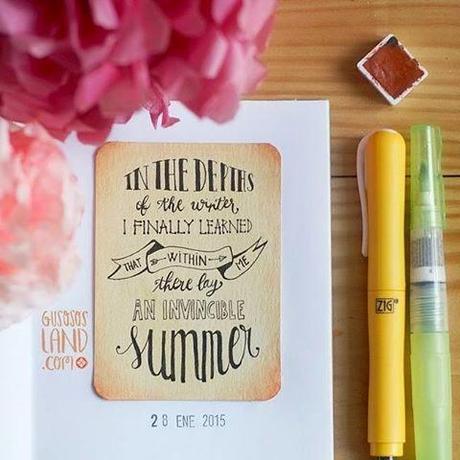 IN THE DEPTHS
of the winter,
I FINALLY LEARNED
THAT WITHIN ME
there lay
AN INVINCIBLE
summer
GUSOSOS
LAND
.com
28 ENE 2015
ZIG